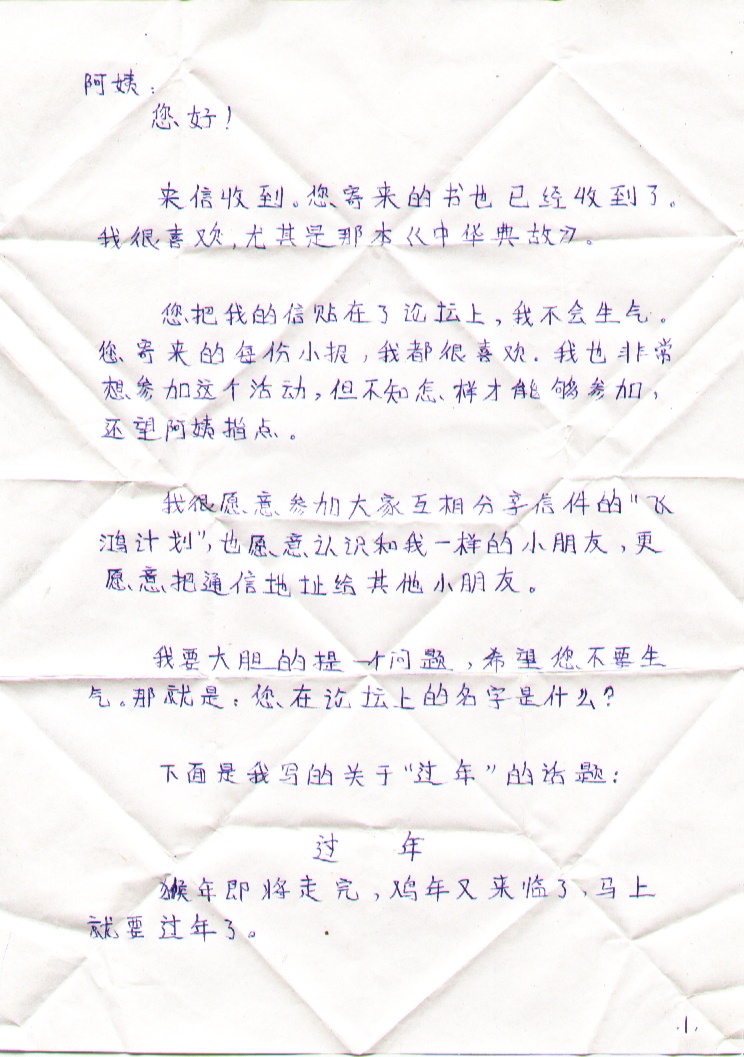 阿姨：
您好！
来信收到。您寄来的书也已经收到了。
我很喜欢，尤其是那本《中华典故》。
您把我的信贴在了论坛上，我不会生气。
您寄来的每份小报，我都很喜欢。我也非常
想参加这个活动，但不知怎样才能够参加，
还望阿姨指点。
我很愿意参加大家互相分享信件的“飞
鸿计划”，也愿意认识和我一样的小朋友，更
愿意把通信地址给其他小朋友。
我要大胆的提一个问题，希望您不要生
气。那就是：您在论坛上的名字是什么？
下面是我写的关于“过年”的话题：
过 年
猴年即将走完，鸡年又来临了，马上
就要过年了。
·1·